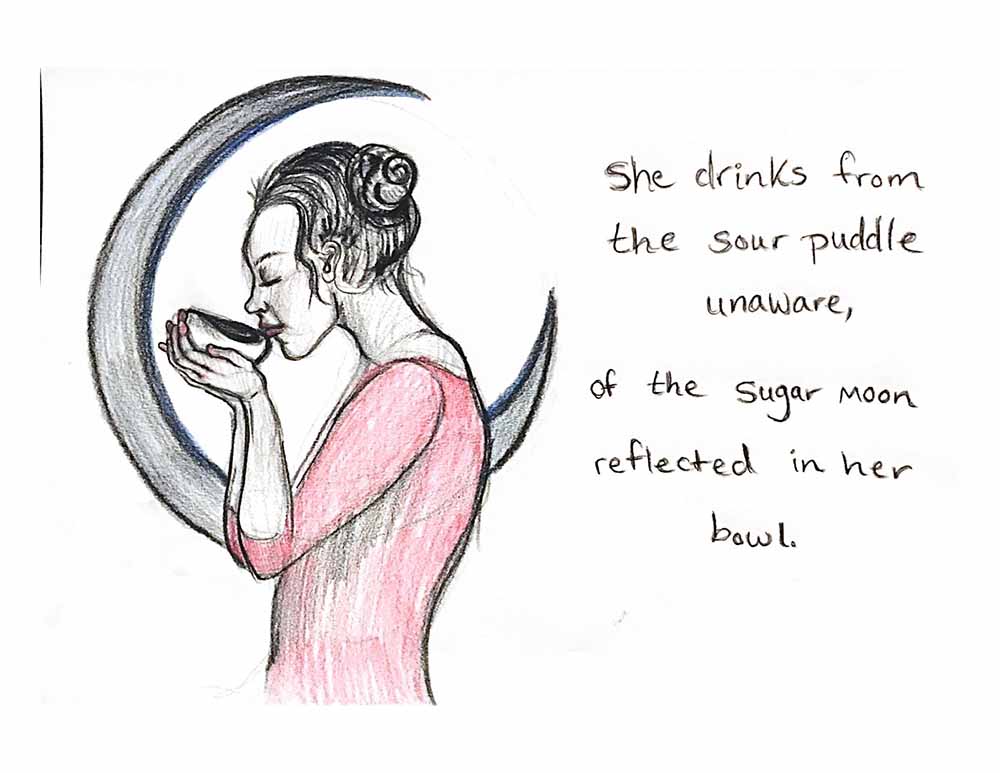 She drinks from
the sour puddle
unaware,
of the sugar moon
reflected in her
bowl.